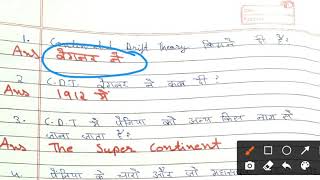 1. Continental Drift Theory किसने दी है?
Ans वेगनर ने
2 C.D.T. वेगनर ने कब दी?
Ans 1912 में
3. C.D.T में पेंजिया को अन्य किस नाम से
जाना जाता है?
Ans The Super Continent
4. पेंजिया के चारों ओर जो